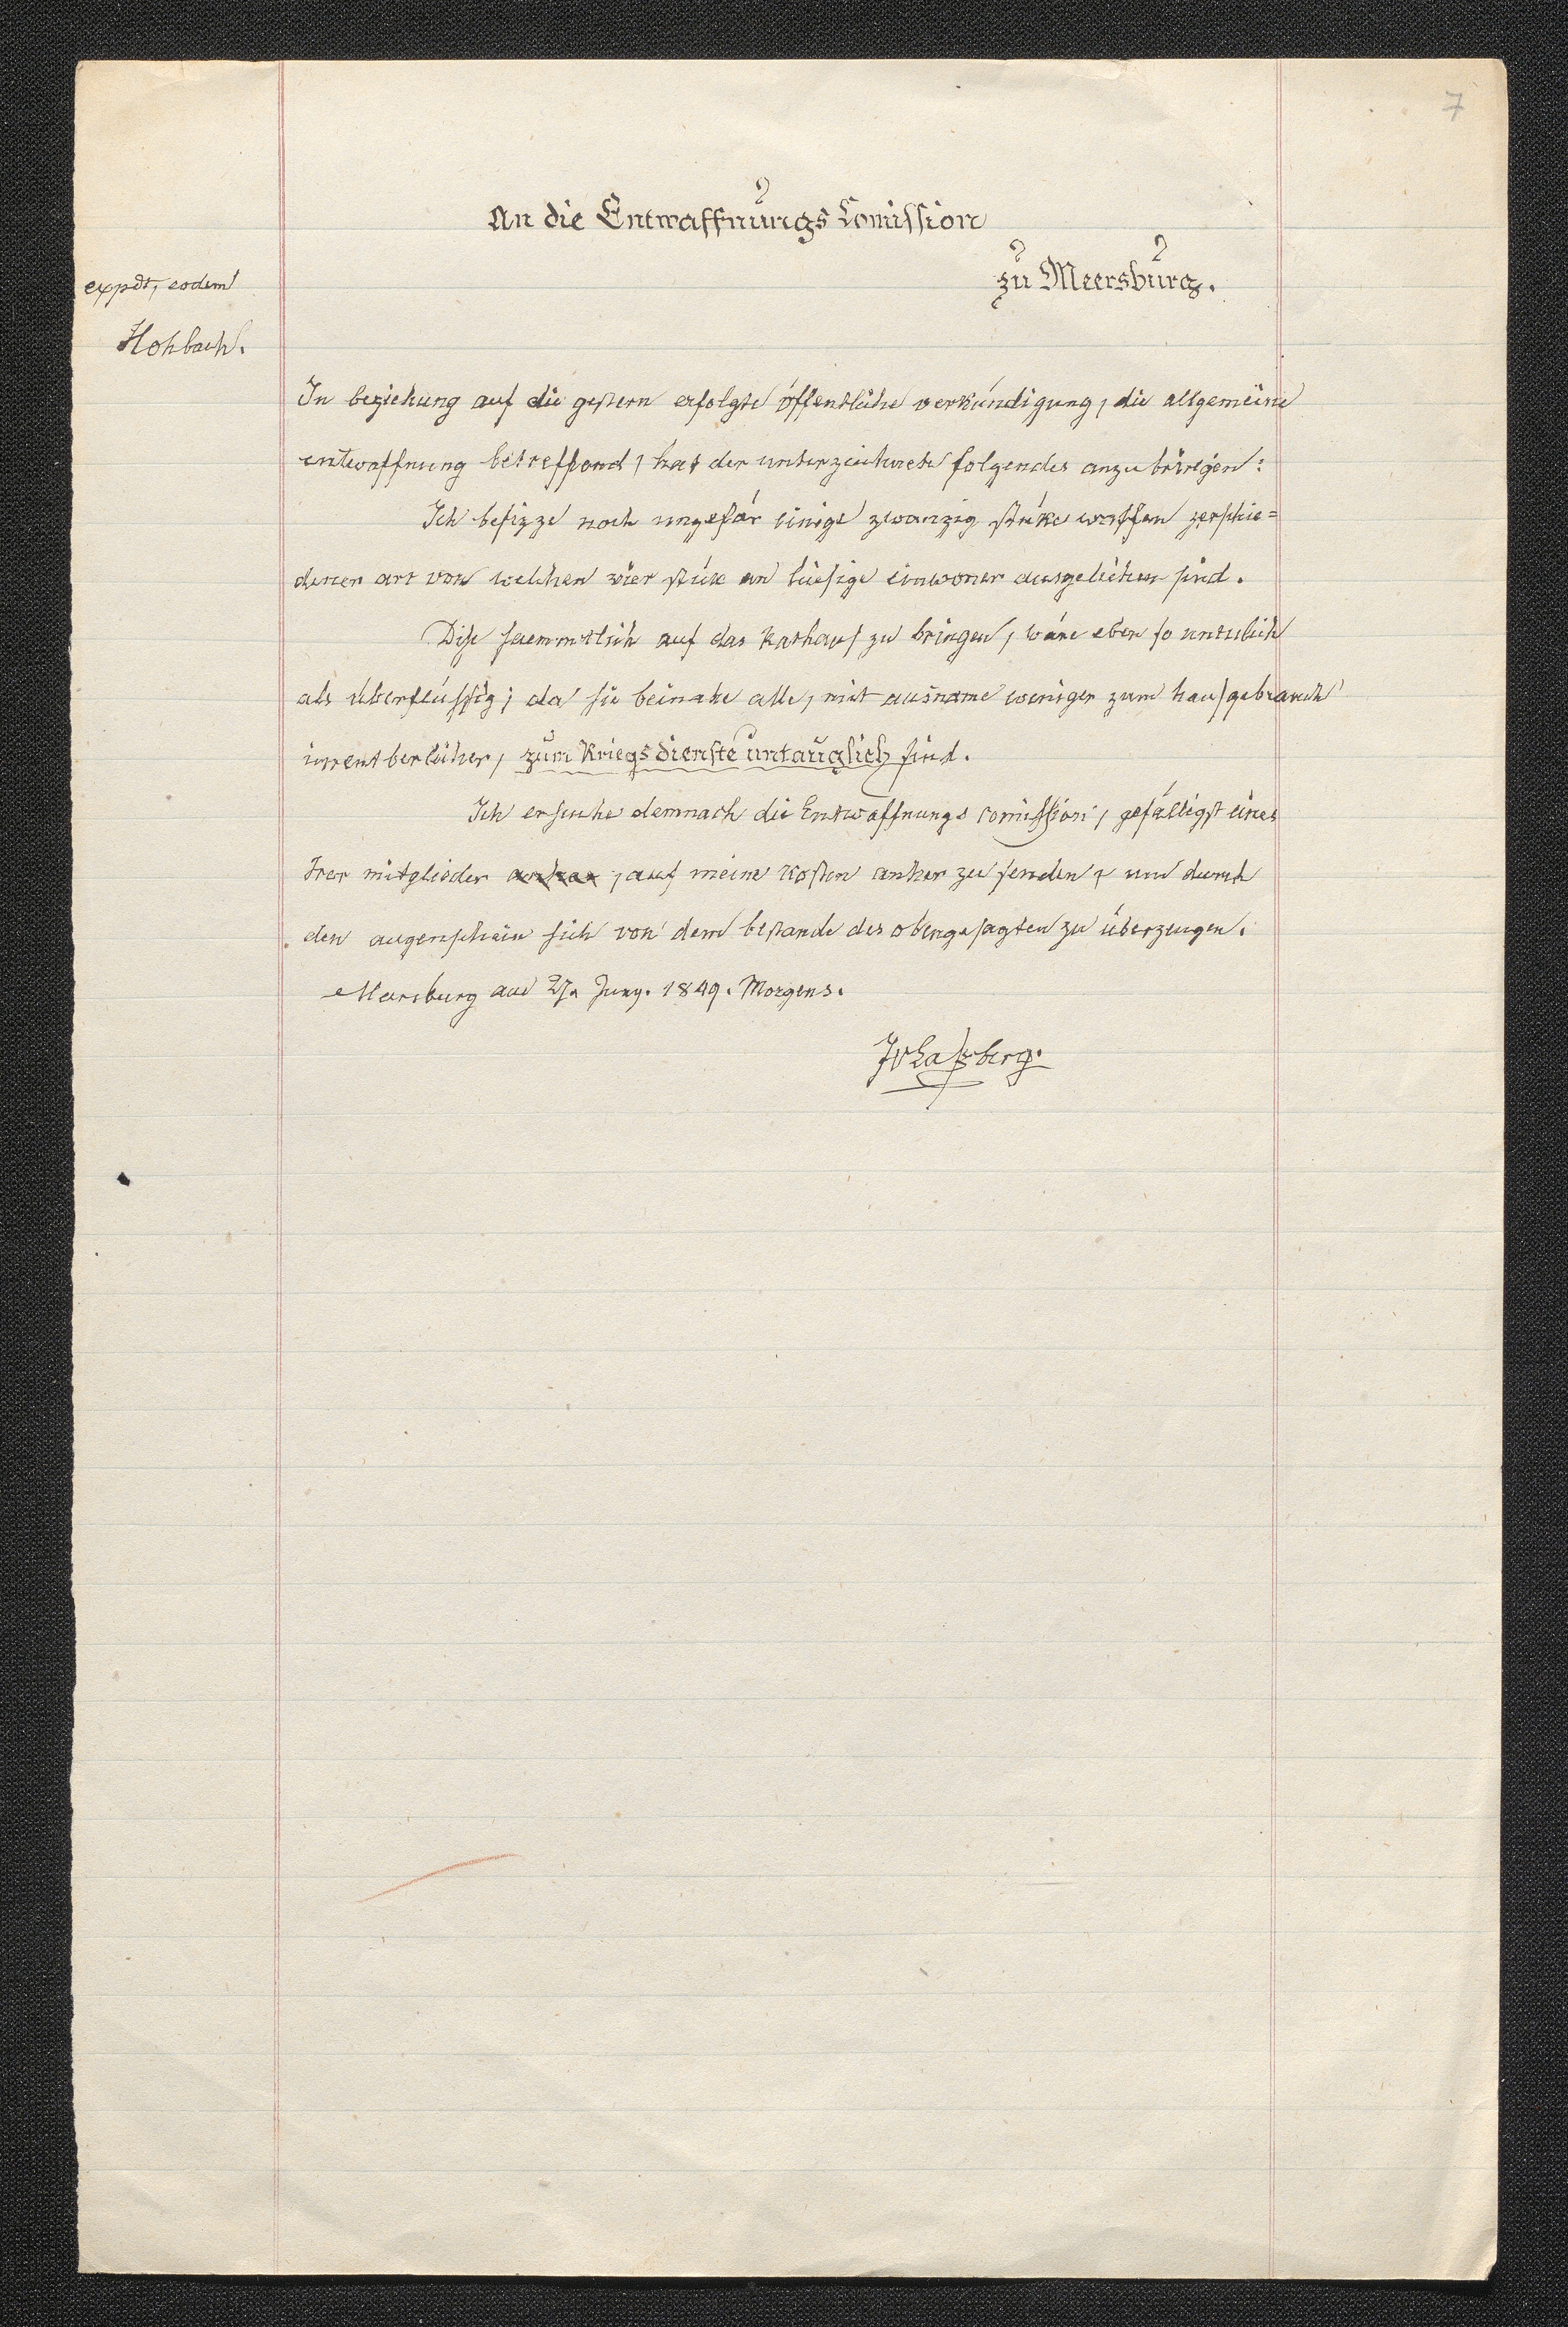 7
An die Entwaffnungs Comission
zu Meersburg.
expdt, eodem
Hohbach.
In beziehung auf die gestern erfolgte öffentliche verkündigung, die allgemeine
entwaffnung betreffend, hat der unterzeichnete folgendes anzubringen:
Ich besizze noch ungefär einige zwanzig stüke waffen verschie=
dener art von welchen vier stük an hiesige einwoner ausgelichen sind.
Dise saemmtlich auf das Rathaus zu bringen, wäre eben so untulich
als überflüssig; da sie beinahe alle, mit ausname weniger zum hausgebrauch
unentberlicher, zum Kriegsdienste untauglich sind.
Ich ersuche demnach die Entwaffnungs comission, gefälligst eines
Irer mitglieder anher, auf meine kosten anher zu senden, um durch
den augenschein sich von dem bestande des obengesagten zu überzeugen.
Mersburg am 27. Juny. 1849. Morgens.
JvLaßberg.